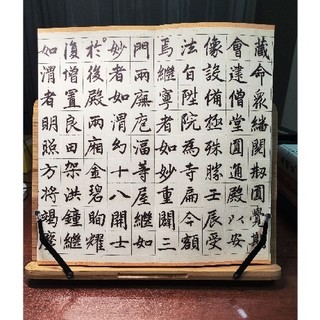 藏命衆繙閱刱圓覺期
會建僧堂圓通殿以安
像設備極殊勝壬辰受
法旨陞院為寺扁今額
焉繼寧者如妙重闢三
門兩廡庖湢等屋繼如
妙者如渭幻十八開士
於後殿兩廂金碧眴耀
復增置良田架洪鍾繼
如渭者明照方將竭蹙